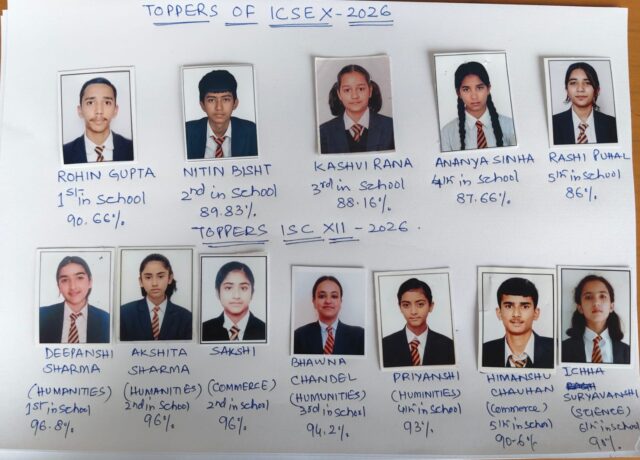 TOPPERS OF ICSE X - 2026
ROHIN GUPTA
1st in school
90.66%
NITIN BISHT
2nd in school
89.83%
KASHVI RANA
3rd in school
88.16%
ANANYA SINHA
4th in school
87.66%
RASHI PUHAL
5th in school
86%
TOPPERS ISC XII - 2026
DEEPANSHI
SHARMA
(HUMANITIES)
1st in school
96.8%
AKSHITA
SHARMA
(HUMANITIES)
2nd in school
96%
SAKSHI
(COMMERCE)
2nd in school
96%
BHAWNA
CHANDEL
(HUMUNITIES)
3rd in school
94.2%
PRIYANSHI
(HUMINITIES)
4th in school
93%
HIMANSHU
CHAUHAN
(commerce)
5th in school
90.6%
ICHHA
SURYAVANSHI
(SCIENCE)
6th in school